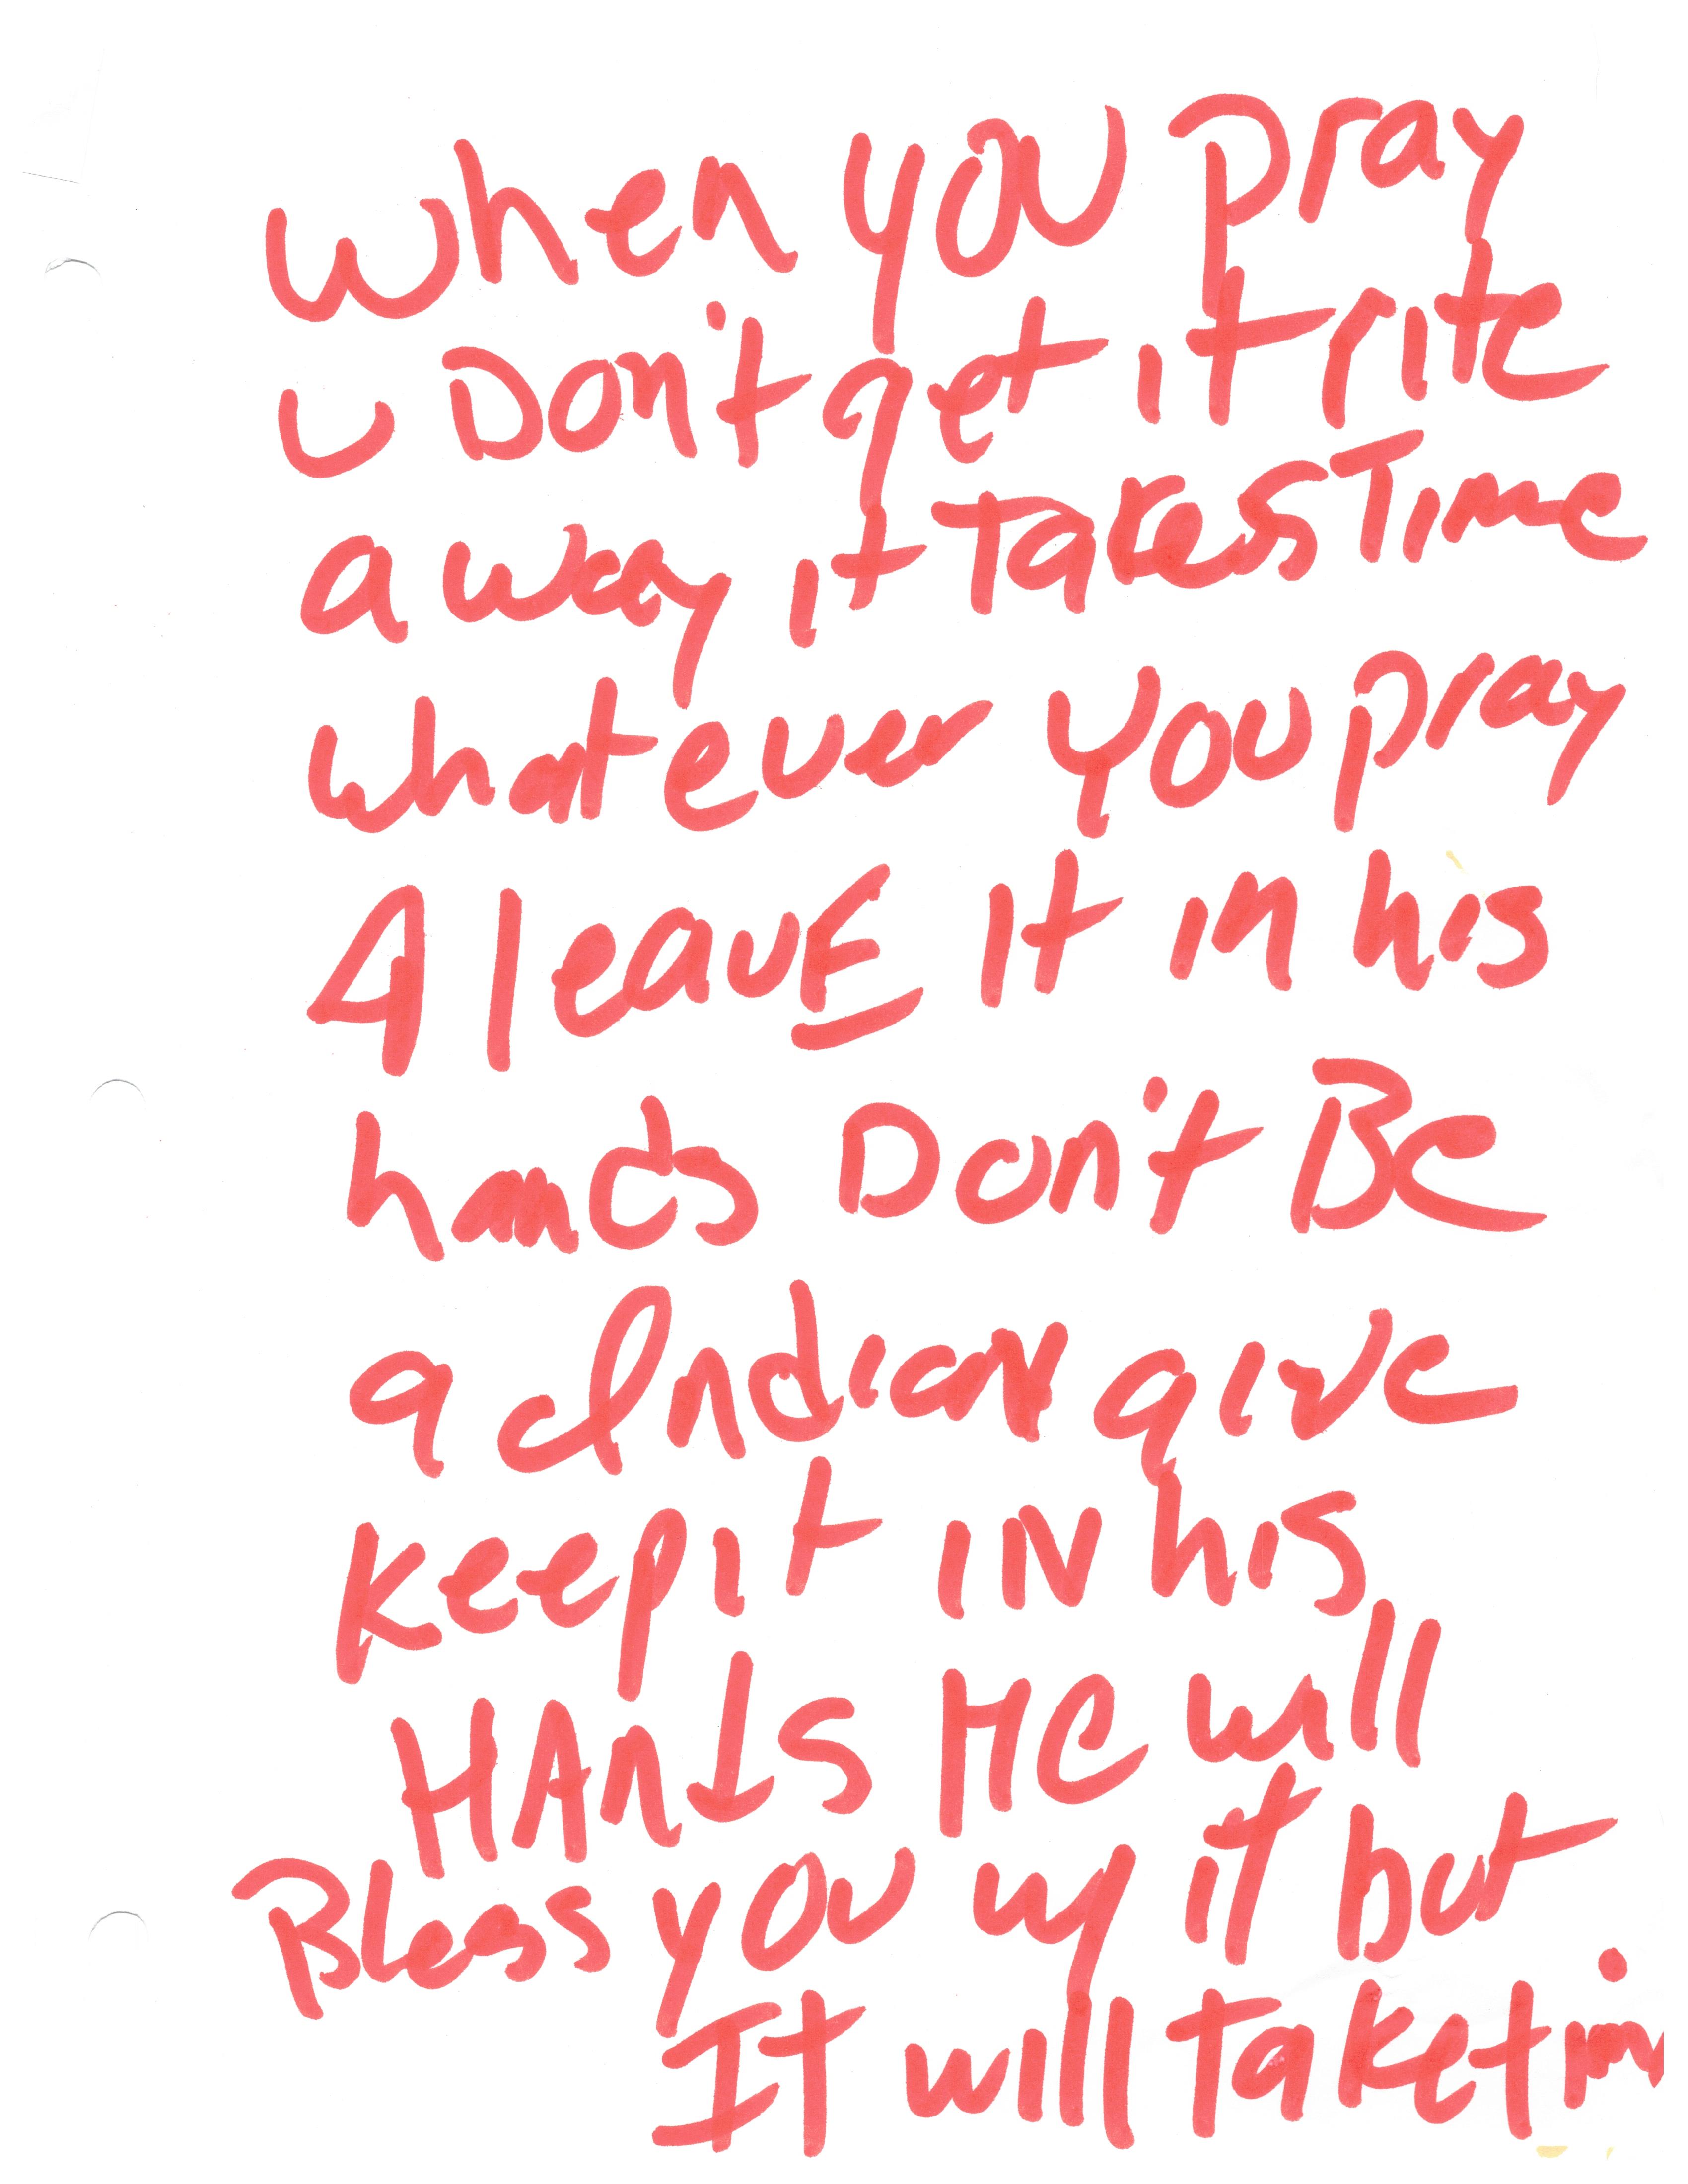 When you pray
u Don't get it rite
away it Takes Time
whatever you pray
4 leavE it in his
hands Don't Be
a Indian give
keep it iN his
HAnds HE will
Bless you wy it but
It will take tim